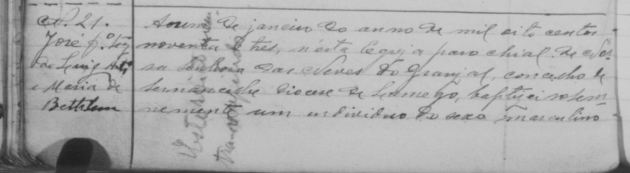 Nº 21.
José fº leg
de Luiz Antº
e Maria de
Bethlem
A um de janeiro do anno de mil oito centos
noventa e tres, n'esta Egreja parochial de Nos
sa Senhora das Neves do Granjal, concelho de
Sernancelhe diocese de Lamego, baptisei solem
nemente um individuo do sexo masculino